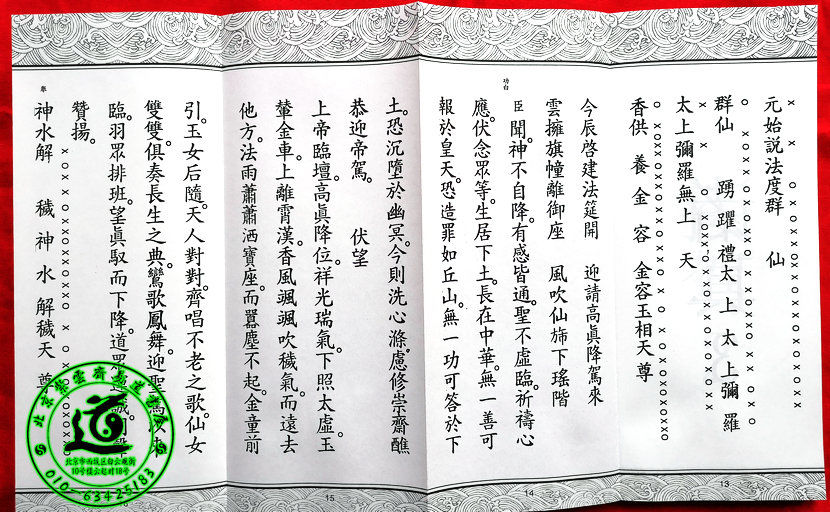 元始說法度群　仙
X　X　O　X　O　X O X O X X O X O X X
群仙　踴躍禮太上太上彌羅
太上彌羅無上　天
香供　養　金　容　金容玉相天尊
今辰啓建法筵開　迎請高眞降駕來
雲擁旗幢離御座　風吹仙斾下瑤階
功白
臣聞。神不自降。有感皆通。聖不虛臨。祈禱心
應。伏念眾等。生居下土。長在中華。無一善可
報於皇天。恐造罪如丘山。無一功可答於下
土。恐沉墮於幽冥。今則洗心滌慮。修崇齋醮
恭迎帝駕。　伏望
上帝臨壇。高眞降位。祥光瑞氣。下照太虛。玉
輦金車。上離霄漢。香風颯颯。吹穢氣。而遠去
他方。法雨蕭蕭。洒寶座。而囂塵不起。金童前
引。玉女后隨。天人對對。齊唱不老之歌。仙女
雙雙。俱奏長生之典。鸞歌鳳舞。迎聖駕以來
臨。羽眾排班。望眞馭而下降。道眾
贊揚。
舉
神水解　穢神水解穢天尊
13
14
15
北京
道
北京市西城區白云觀街
10号樓公起时18号
010-63425183